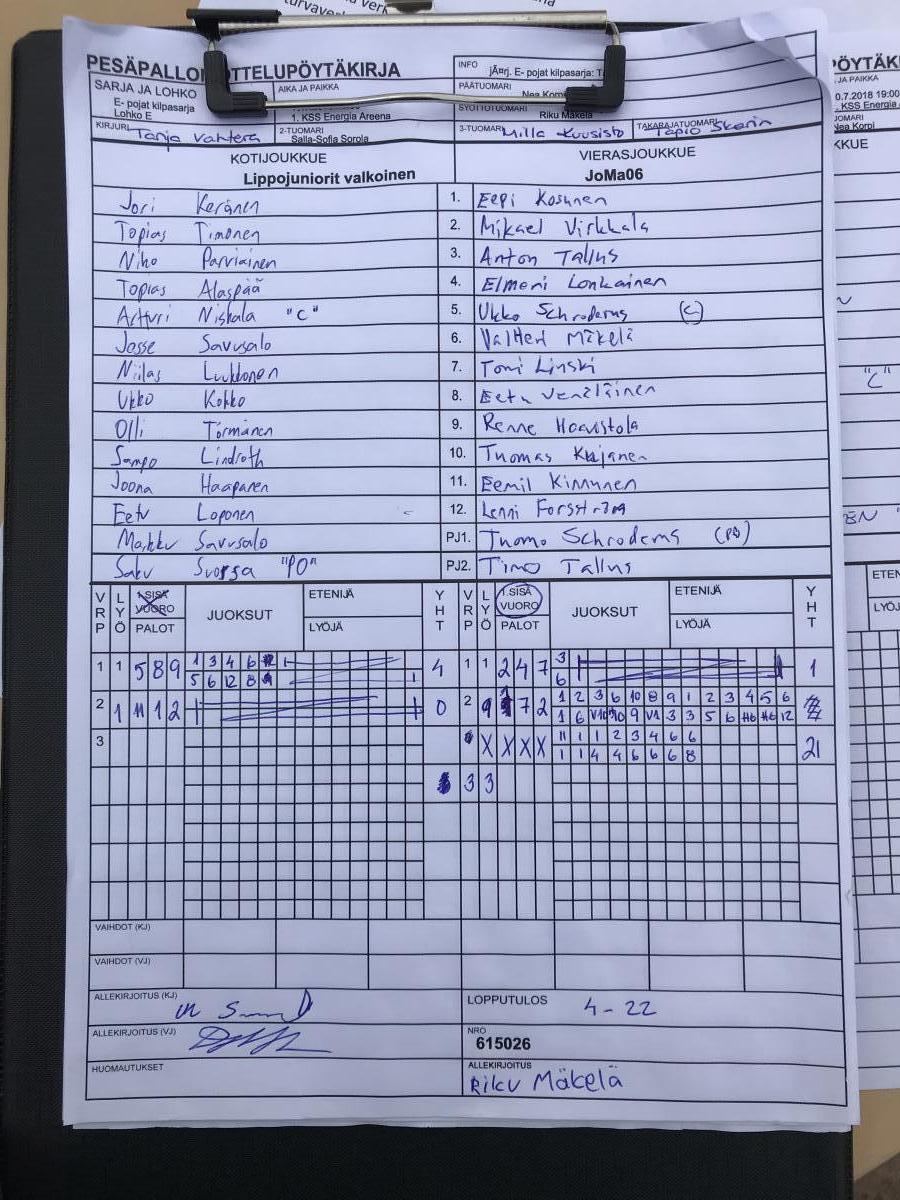 PESÄPALLO OTTELUPÖYTÄKIRJA
INFO
jÃ¤rj. E- pojat kilpasarja:
SARJA JA LOHKO
E- pojat kilpasarja
Lohko E
AIKA JA PAIKKA
1. KSS Energia Areena
PÄÄTUOMARI
Nea Korpi
SYÖTTÖTUOMARI
Riku Mäkelä
KIRJURI Tanja Vahtera
2-TUOMARI
Salla-Sofia Sorola
3-TUOMARI Milla Kuusisto
TAKARAJATUOMARI
Tapio Skarin
KOTIJOUKKUE
Lippojuniorit valkoinen
VIERASJOUKKUE
JoMa06
Jori Keränen 1. Eepi Kosunen
Topias Timonen 2. Mikael Virkkala
Niko Parviainen 3. Anton Tallus
Topias Alaspää 4. Elmeri Lonkainen
Artturi Niskala "C" 5. Ukko Schroderus (C)
Josse Savusalo 6. Valtteri Mäkelä
Niilas Luukkonen 7. Tomi Linski
Ukko Kokko 8. Eetu Venäläinen
Olli Törmänen 9. Renne Haavistola
Sampo Lindroth 10. Tuomas Kujanen
Joona Haapanen 11. Eemil Kinnunen
Eetu Loponen 12. Lenni Forsström
Markku Savusalo PJ1. Tuomo Schroderus
Saku Suorsa "PO" PJ2. Timo Tallus
VRP LYÖ 1.SISÄ VUORO PALOT JUOKSUT ETENIJÄ LYÖJÄ YHT
VRP LYÖ 1.SISÄ VUORO PALOT JUOKSUT ETENIJÄ LYÖJÄ YHT
1 1 5 8 9 1 3 4 6 4 1 1 2 4 7 3 1
5 6 12 8 6
2 1 11 12 0 2 9 7 2 1 2 3 6 10 8 9 1 2 3 4 5 6
1 6 V10 10 9 V1 3 3 5 6 H6 H6 12
3 X X X X 11 1 1 2 3 4 6 6 21
1 1 4 4 6 6 6 8
3 3
VAIHDOT (KJ)
VAIHDOT (VJ)
ALLEKIRJOITUS (KJ)
LOPPUTULOS 4-22
ALLEKIRJOITUS (VJ)
NRO
615026
HUOMAUTUKSET
ALLEKIRJOITUS
Riku Mäkelä